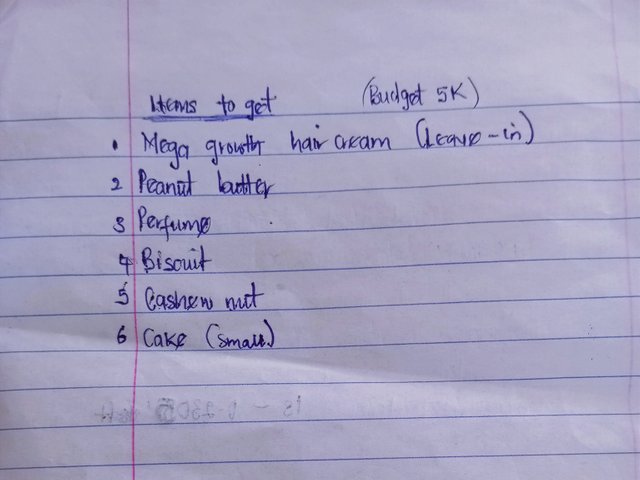 Items to get (Budget 5K)
1 Mega growth hair cream (Leave-in)
2 Peanut butter
3 Perfume
4 Biscuit
5 Cashew nut
6 Cake (small)